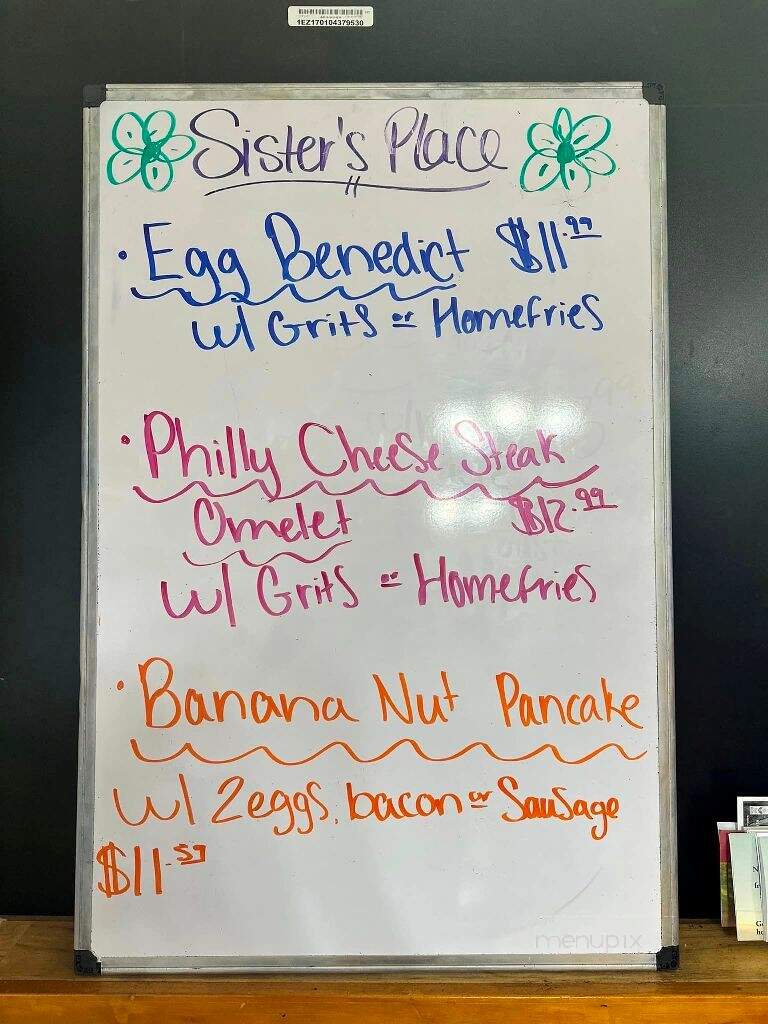 1EZ170104379530
Sister's Place
• Egg Benedict $11.99
w/ Grits or Homefries
• Philly Cheese Steak
Omelet $12.99
w/ Grits or Homefries
• Banana Nut Pancake
w/ 2eggs, bacon or Sausage
$11.59
menupix